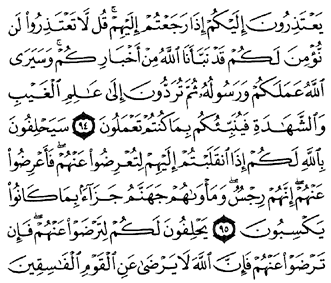 يَعْتَذِرُونَ إِلَيْكُمْ إِذَا رَجَعْتُمْ إِلَيْهِمْ ۚ قُل لَّا تَعْتَذِرُوا۟ لَن
نُّؤْمِنَ لَكُمْ قَدْ نَبَّأَنَا ٱللَّهُ مِنْ أَخْبَارِكُمْ ۚ وَسَيَرَى
ٱللَّهُ عَمَلَكُمْ وَرَسُولُهُۥ ثُمَّ تُرَدُّونَ إِلَىٰ عَـٰلِمِ ٱلْغَيْبِ
وَٱلشَّهَـٰدَةِ فَيُنَبِّئُكُم بِمَا كُنتُمْ تَعْمَلُونَ ٩٤ سَيَحْلِفُونَ
بِٱللَّهِ لَكُمْ إِذَا ٱنقَلَبْتُمْ إِلَيْهِمْ لِتُعْرِضُوا۟ عَنْهُمْ ۖ فَأَعْرِضُوا۟
عَنْهُمْ ۖ إِنَّهُمْ رِجْسٌ ۖ وَمَأْوَىٰهُمْ جَهَنَّمُ جَزَآءًۢ بِمَا كَانُوا۟
يَكْسِبُونَ ٩٥ يَحْلِفُونَ لَكُمْ لِتَرْضَوْا۟ عَنْهُمْ ۖ فَإِن
تَرْضَوْا۟ عَنْهُمْ فَإِنَّ ٱللَّهَ لَا يَرْضَىٰ عَنِ ٱلْقَوْمِ ٱلْفَـٰسِقِينَ